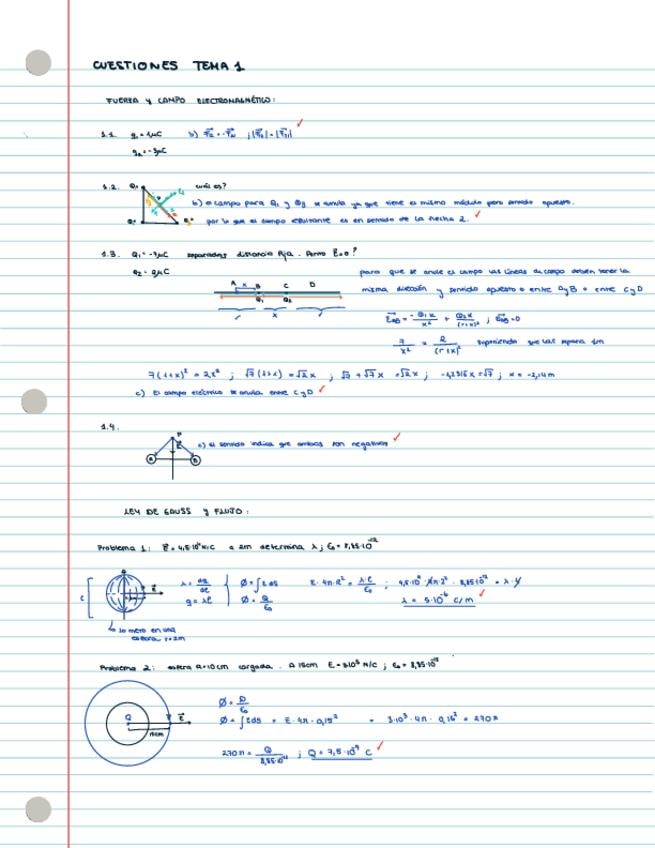 CUESTIONES TEMA 1
FUERZA Y CAMPO ELECTROMAGNÉTICO:
1.1. q₁ = 1μC b)
q₂ = -3μC
1.2. cuál es?
b) el campo para Q₁ y Q₃ se anula ya que tiene el mismo módulo pero sentido opuesto.
por lo que el campo resultante es en sentido de la flecha 2.
1.3. Q₁ = -7μC separados distancia fija. Punto E=0?
Q₂ = 2μC
para que se anule el campo las líneas de campo deben tener la
misma dirección y sentido opuesto o entre A y B o entre C y D
A x B C D
Q₁ Q₂
x
7/x² = 2/(1+x)² suponiendo que las separa 1m
7(1+x)² = 2x² ; √7(1+x) = √2x ; √7 + √7x = √2x ; x = -2,14m
c) El campo eléctrico se anula entre C y D
1.4.
P
c) el sentido indica que ambas son negativas
LEY DE GAUSS Y FLUJO:
Problema 1: a 2m determina λ ; ε₀ = 8,85·10⁻¹²
λ = dq/dl
q = λl
∅ = ∫E ds
∅ = Q/ε₀
E·4π·R² = λ·l/ε₀
λ = 5·10⁻⁶ C/m
lo meto en una
esfera r=2m
Problema 2: esfera R=10cm cargada. A 15cm E = 3·10³ N/C ; ε₀ = 8,85·10⁻¹²
Q
E
15cm
∅ = ∫E ds = E·4π·0,15² = 3·10³·4π·0,15² = 270π
; Q = 7,5·10⁻⁹ C